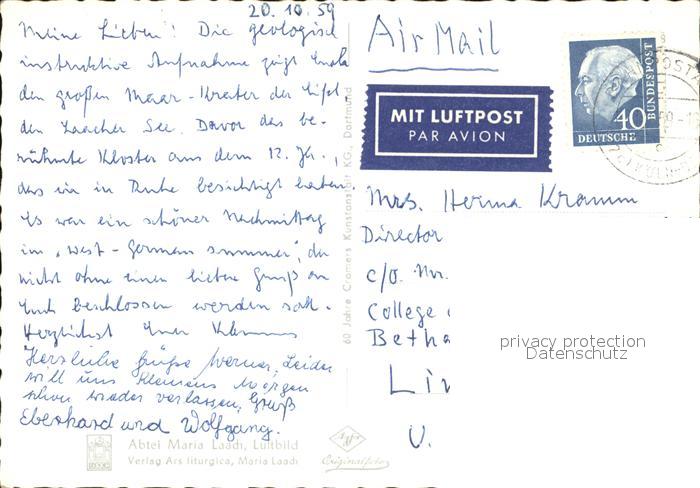 20.10.59
Meine Lieben! Die geologisch
instruktive Aufnahme zeigt Euch
den großen Maar-Krater der Eifel
den Laacher See. Davor das be-
rühmte Kloster aus dem 12. Jh.,
das wir in Ruhe besichtigt haben.
Es war ein schöner Nachmittag
im "West-German summer", der
nicht ohne einen lieben Gruß an
Euch beschlossen werden soll.
Herzlichst Euer Klemens
Herzliche Grüße Werner, Leider
will uns Klemens morgen
schon wieder verlassen, Gruß
Eberhard und Wolfgang.
Abtei Maria Laach, Luftbild
Verlag Ars liturgica, Maria Laach
Originalfoto
60 Jahre Cramers Kunstanstalt KG., Dortmund
Air Mail
MIT LUFTPOST
PAR AVION
40
DEUTSCHE
BUNDESPOST
Mrs. Herma Kramm
Director
c/o. Mr.
College
Betha
Lin
U.
privacy protection
Datenschutz